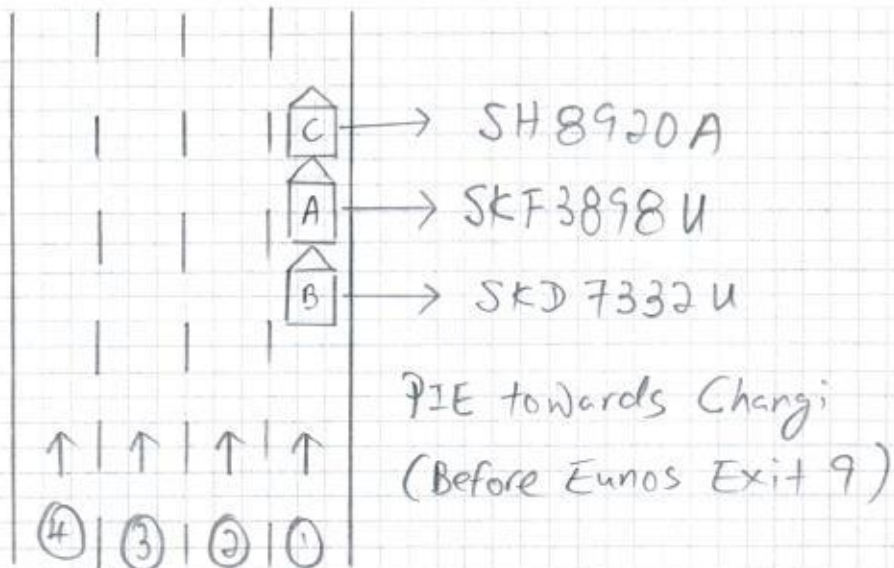 C → SH8920A
A → SKF3898U
B → SKD7332U
PIE towards Changi
(Before Eunos Exit 9)
4 3 2 1